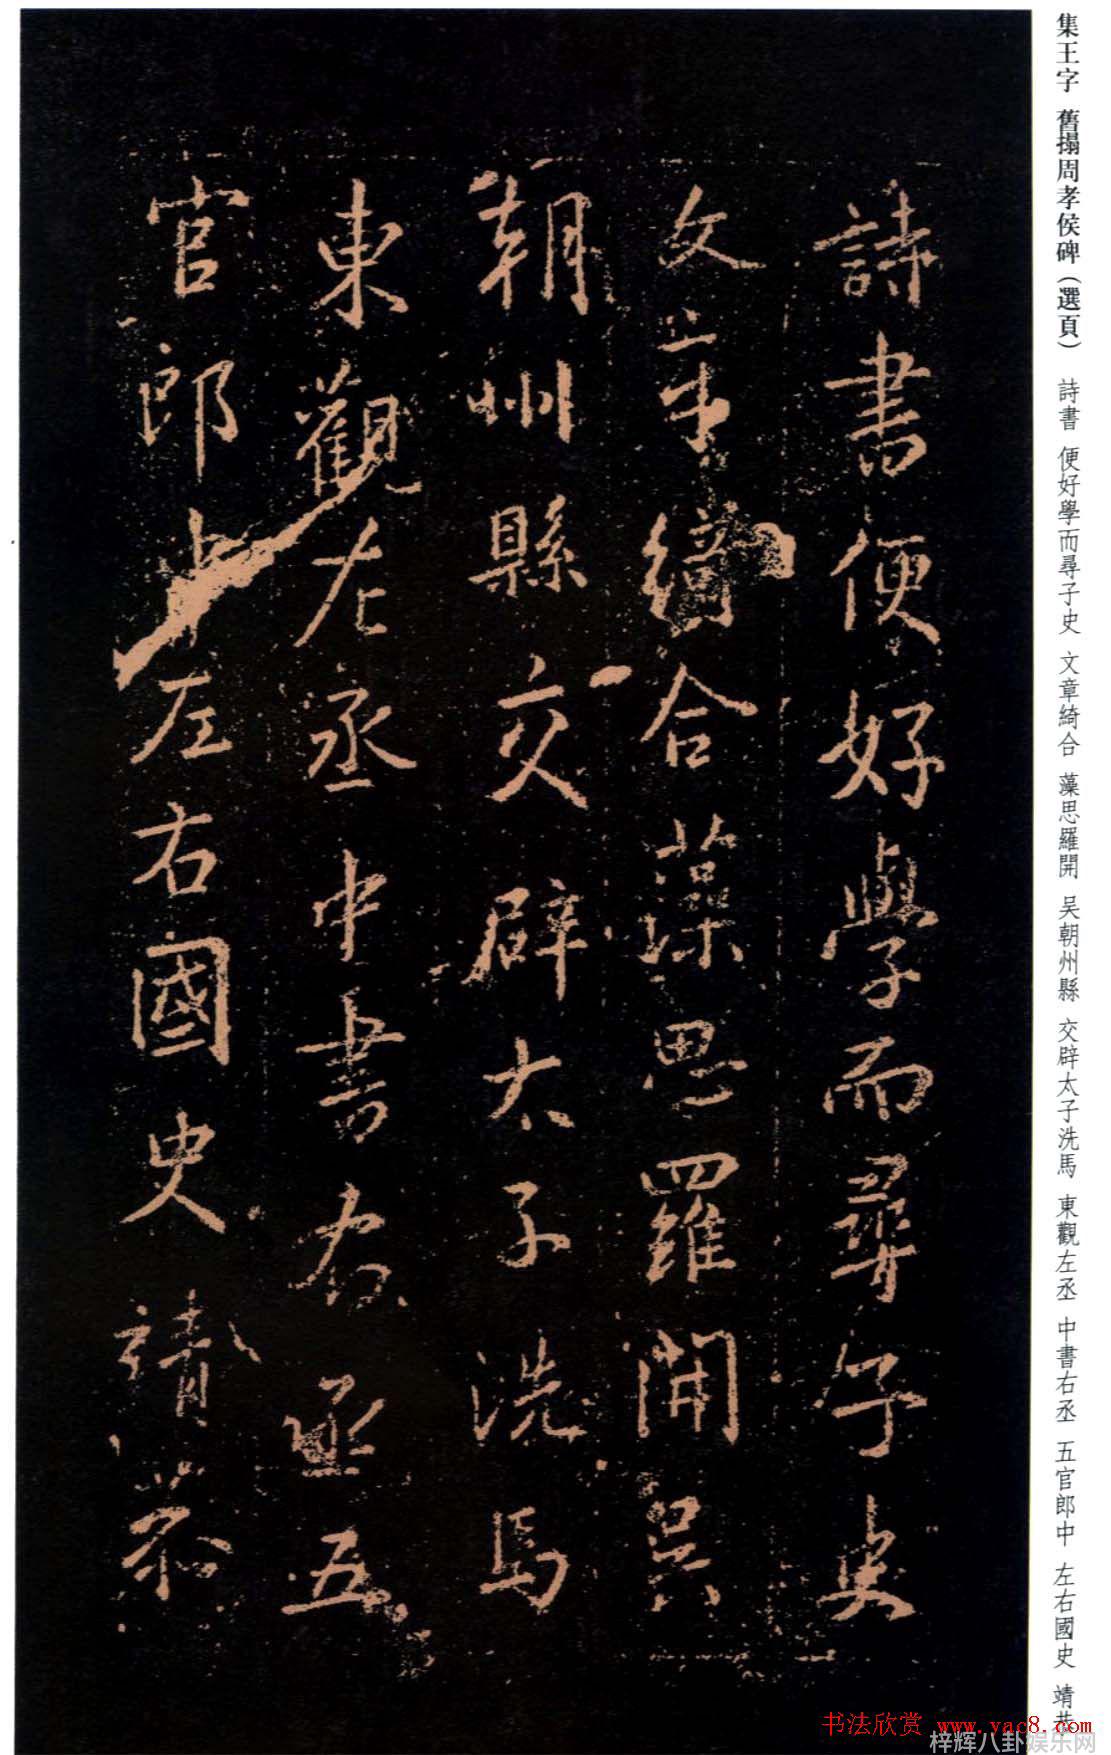 集王字 舊搨周孝侯碑(選頁) 詩書 便好學而尋子史 文章綺合 藻思羅開 吴朝州縣 交辟太子洗馬 東觀左丞 中書右丞 五官郎中 左右國史 靖恭
詩書便好學而尋子史
文章綺合藻思羅開吴
朝州縣交辟太子洗馬
東觀左丞中書右丞五
官郎中左右國史靖恭
书法欣赏 www.yac8.com
梓辉八卦娱乐网